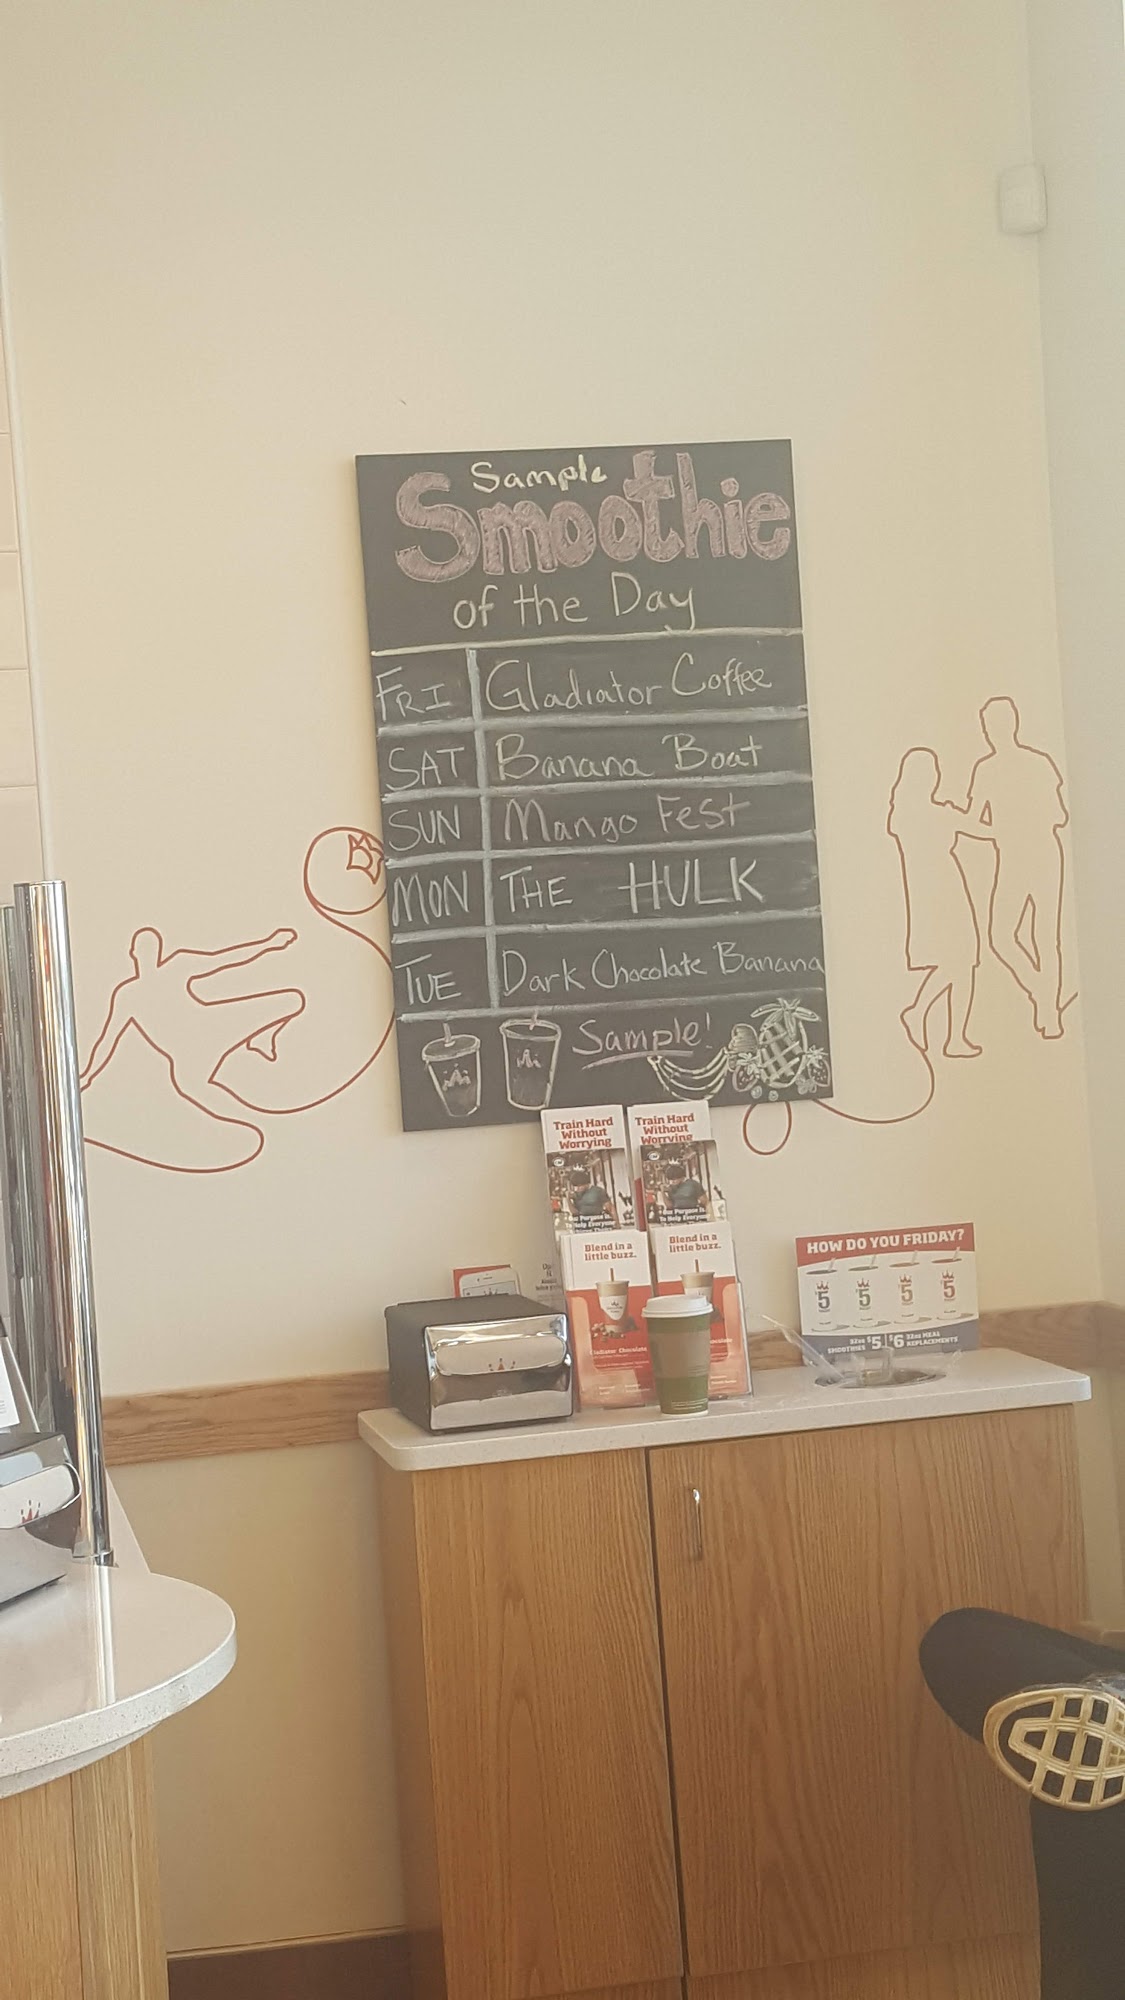 Sample
Smoothie
of the Day
FRI Gladiator Coffee
SAT Banana Boat
SUN Mango Fest
MON THE HULK
TUE Dark Chocolate Banana
Sample!
Train Hard
Without
Worrying
Train Hard
Without
Worrying
Blend in a
little buzz.
Blend in a
little buzz.
Gladiator Chocolate
HOW DO YOU FRIDAY?
$5 $5 $5 $5
32oz SMOOTHIES $5 $6 32oz MEAL REPLACEMENTS